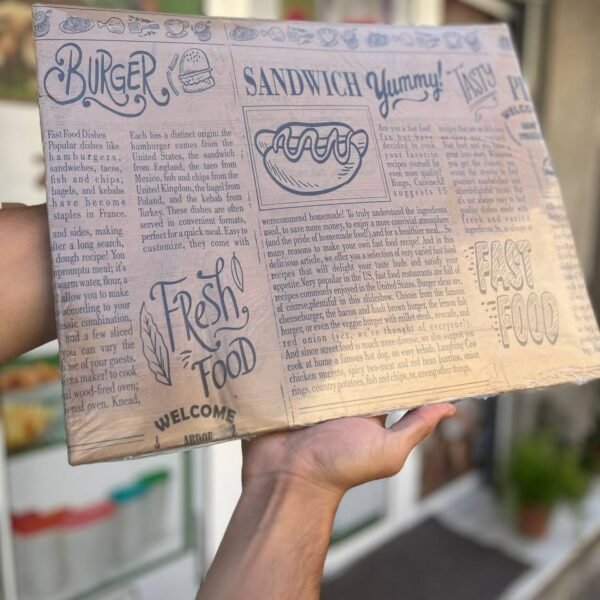 BURGER
SANDWICH Yummy! TASTY
Fast Food Dishes
Popular dishes like
hamburgers,
sandwiches, tacos,
fish and chips,
bagels, and kebabs
have become
staples in France.
and sides, making
after a long search,
dough recipe! You
impromptu meal; it's
arm water, flour, a
allow you to make
according to your
assic combination,
and a few sliced
you can vary the
ose of your guests.
izza maker! to cook
wood-fired oven;
oven. Knead,
Each has a distinct origin: the
hamburger comes from the
United States, the sandwich
from England, the taco from
Mexico, fish and chips from the
United Kingdom, the bagel from
Poland, and the kebab from
Turkey. These dishes are often
served in convenient formats,
perfect for a quick meal. Easy to
customize, they come with
FRESH
FOOD
WELCOME
Are you a fast food
fan but have
decided to cook
your favorite
recipes yourself for
even more quality?
Bingo, CuisineAZ
suggests
werecommend homemade! To truly understand the ingredients
used, to save more money, to enjoy a more convivial atmosphere
(and the pride of homemade food!),and for a healthier meal... So
many reasons to make your own fast food recipe! And in this
delicious article, we offer you a selection of very varied fast food
recipes that will delight your taste buds and satisfy your
appetite.Very popular in the US, fast food restaurants are full of
recipes commonly served in the United States. Burger ideas are,
of course,plentiful in this slideshow. Choose from the famous
cheeseburger, the bacon and hash brown burger, the mini fish
burger, or even the veggie burger with millet steak, avocado, and
red onion (yes, we've thought of everyone!)
And since street food is much more diverse, we also suggest you
cook at home a famous hot dog, an easy kebab, Laughing Cow
chicken nuggets, spicy two-meat and red bean burritos, onion
rings, country potatoes, fish and chips, or, among other things,
FAST
FOOD